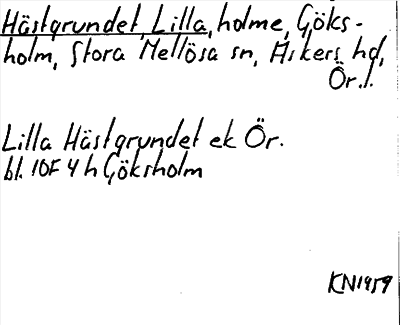 Hästgrundet, Lilla, holme, Göks-
holm, Stora Mellösa sn, Askers hd,
Ör.l.
Lilla Hästgrundet ek Ör.
bl. 10F 4 h Göksholm
KN1959